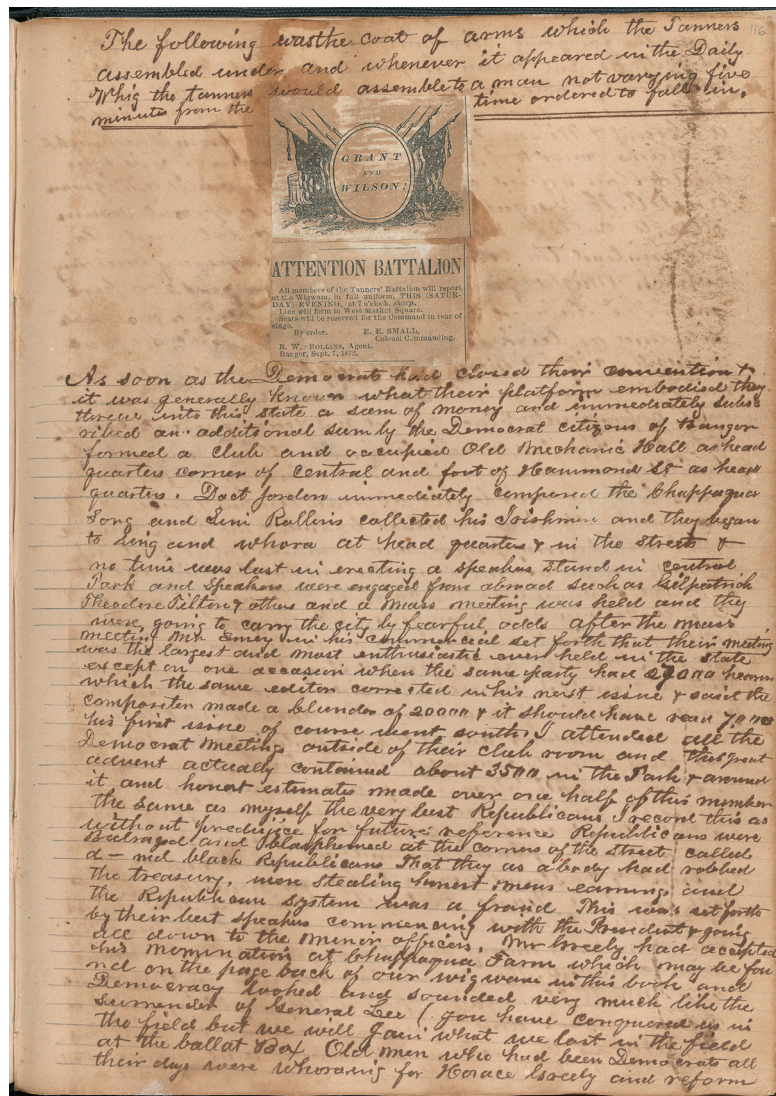 116
The following was the coat of arms which the Tanners
assembled under and whenever it appeared in the Daily
Whig the tanners would assemble to a man not varying five
minutes from the time ordered to fall in.
GRANT
AND
WILSON!
ATTENTION BATTALION
All members of the Tanners' Battalion will report
at the Wigwam, in full uniform, THIS (SATUR-
DAY) EVENING, at 7 o'clock, sharp.
Line will form in West Market Square.
Seats will be reserved for the Command in rear of
stage.
By order. E. E. SMALL,
Colonel Commanding.
R. W. ROLLINS, Agent.
Bangor, Sept. 7, 1872.
As soon as the Democrats had closed their convention &
it was generally known what their platform embodied they
threw into this state a sum of money and immediately subsc
ribed an additional sum by the Democrat citizens of Bangor
formed a club and occupied Old Mechanic Hall as head
quarters corner of Central and foot of Hammond St as head
quarters. Doct Jordon immediately composed the Chappaqua
Song and Rollins collected his Irishmen and they began
to sing and whora at head quarters & in the streets &
no time was lost in erecting a speakers stand in central
Park and speakers were engaged from abroad such as Gilpatrick
Theodore Tilton & others and a mass meeting was held and they
were going to carry the city by fearful odds after the mass
meeting Mr Emery in his commercial set forth that their meeting
was the largest and most enthusiastic ever held in the state
except on one occasion when the same party had 27000 hearers
which the same editor corrected in his next issue & said the
compositer made a blunder of 20000 & it should have read 7000
his first issue of course went south. I attended all the
Democrat Meetings outside of their club room and this great
advent actually contained about 3500 in the Park & around
it and honest estimates made over one half of this number
the same as myself the very best Republicans I record this as
without predujice for future reference Republicans were
and Blasphemed at the corners of the street called
d—md black Republicans That they as a body had robbed
the treasury, were stealing honest mens earnings and
the Republican system was a fraud This was set forth
by their best speakers commencing with the President & going
all down to the minor officers. Mr Greely had accepted
his nomination at Chappaqua Farm which may be fou
nd on the page back of our wigwam in this book and
Democracy looked and sounded very much like the
surrender of General Lee (you have conquered us in
the field but we will gain what we lost in the field
at the ballat Box Old men who had been Democrats all
their days were whoraing for Horace Greely and reform